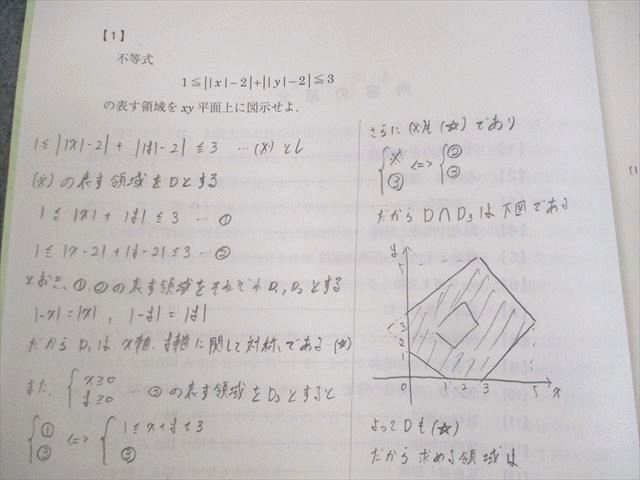 【1】
不等式
1≦||x|-2|+||y|-2|≦3
の表す領域を xy 平面上に図示せよ.
1≦||x|-2|+||y|-2|≦3 …(※)とし
(※)の表す領域をDとする
1≦|x|+|y|≦3 …①
1≦|x-2|+|y-2|≦3 …②
とおき、①、②の表す領域をそれぞれD₁, D₂とする
|-x|=|x| , |-y|=|y|
だから D₁は x軸、y軸に関して対称である(☆)
また、{x≧0 y≧0 …③の表す領域をD₃とすると
{① ③ ⇔ {1≦x+y≦3 ③
さらに(※)も(☆)であり
{※ ③ ⇔ {② ③
だから D∩D₃は下図である
y
5
3
2
1
0 1 2 3 5 x
よってDも(☆)
だから求める領域は